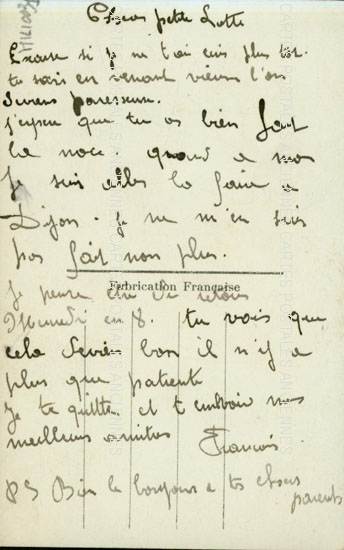 Chère petite Lotte
Excuse si je ne t'ai écris plus tôt
tu sais en venant vieux l'on
devient paresseuse.
j'espère que tu as bien fait
la noce. quand a moi
je suis allés la faire a
Dijon. je ne m'en suis
pas fait non plus.
Fabrication Française
Je pense être de retour
Mercredi en 8. tu vois que
cela devien bon il n'y a
plus que patiente
Je te quitte et t'embrasse mes
meilleurs amities
Francois
PS Bien le bonjours a tes chers
parents
CARTES ANCIENNES